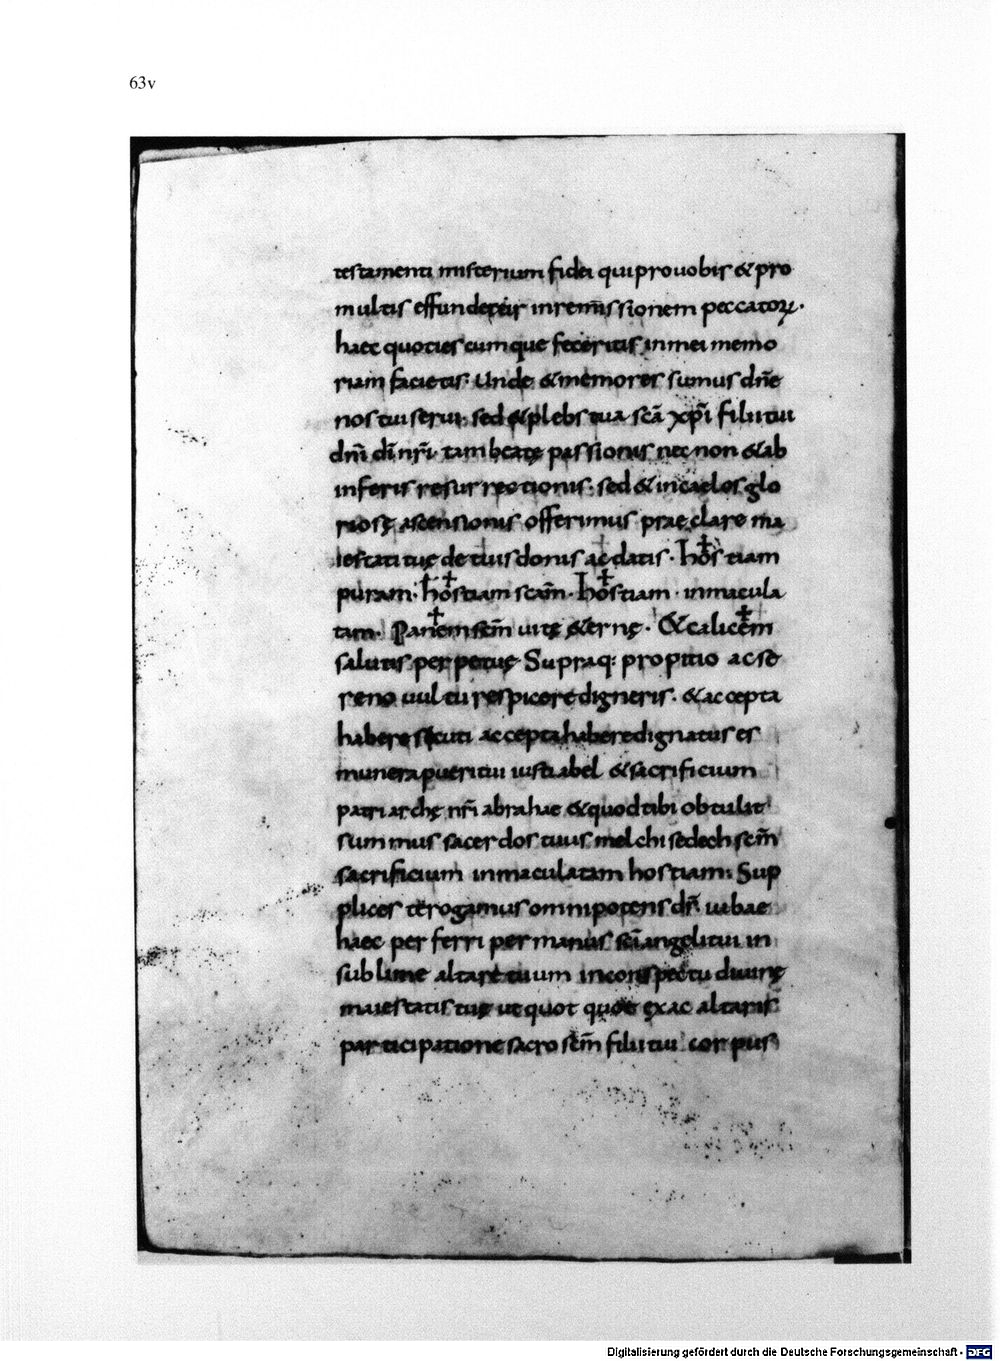 63v
testamenti misterium fidei qui pro uobis & pro
multis effundetur in remissionem peccatoꝝ.
haec quotiescumque feceritis in mei memo
riam facietis. Unde & memores sumus dn̄e
nos tui serui. sed & plebs tua sc̄a xp̄i filii tui
dn̄i dī nr̄i. tam beatę passionis nec non & ab
inferis resurrectionis. sed & in caelos glo
riosę ascensionis offerimus praeclare ma
iestati tuę de tuis donis ac datis. hos✝tiam
puram. hos✝tiam sc̄am. hos✝tiam. inmacula
tam. Pan✝em sc̄m uitę &ernę. & calice✝m
salutis perpetuę Supraq: propitio ac se
reno uultu respicere digneris. & accepta
habere sicuti accepta habere dignatus es
munera pueri tui iusti abel & sacrificium
patriarchę nr̄i abrahae & quod tibi obtulit
summus sacerdos tuus melchisedech sc̄m
sacrificium inmaculatam hostiam. Sup
plices te rogamus omnipotens ds̄ iubae
haec perferri per manus sc̄i angeli tui in
sublime altare tuum in conspectu diuinę
maiestatis tuę ut quot quot ex ac altaris
participatione sacro sc̄m filii tui corpus
Digitalisierung gefördert durch die Deutsche Forschungsgemeinschaft - DFG